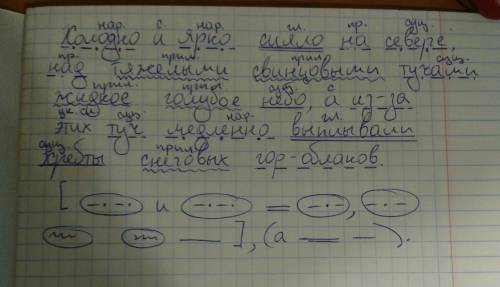 нар. с. нар. гл. пр. сущ.
Холодно и ярко сияло на севере,
пр. прил. прил. сущ.
над тяжелыми свинцовыми тучами
прил. прил. сущ. с.
жидкое голубое небо, а из-за
сущ. нар. гл.
этих туч медленно выплывали
сущ. прил.
хребты снеговых гор-облаков.
[ и = , ], (а = - ).